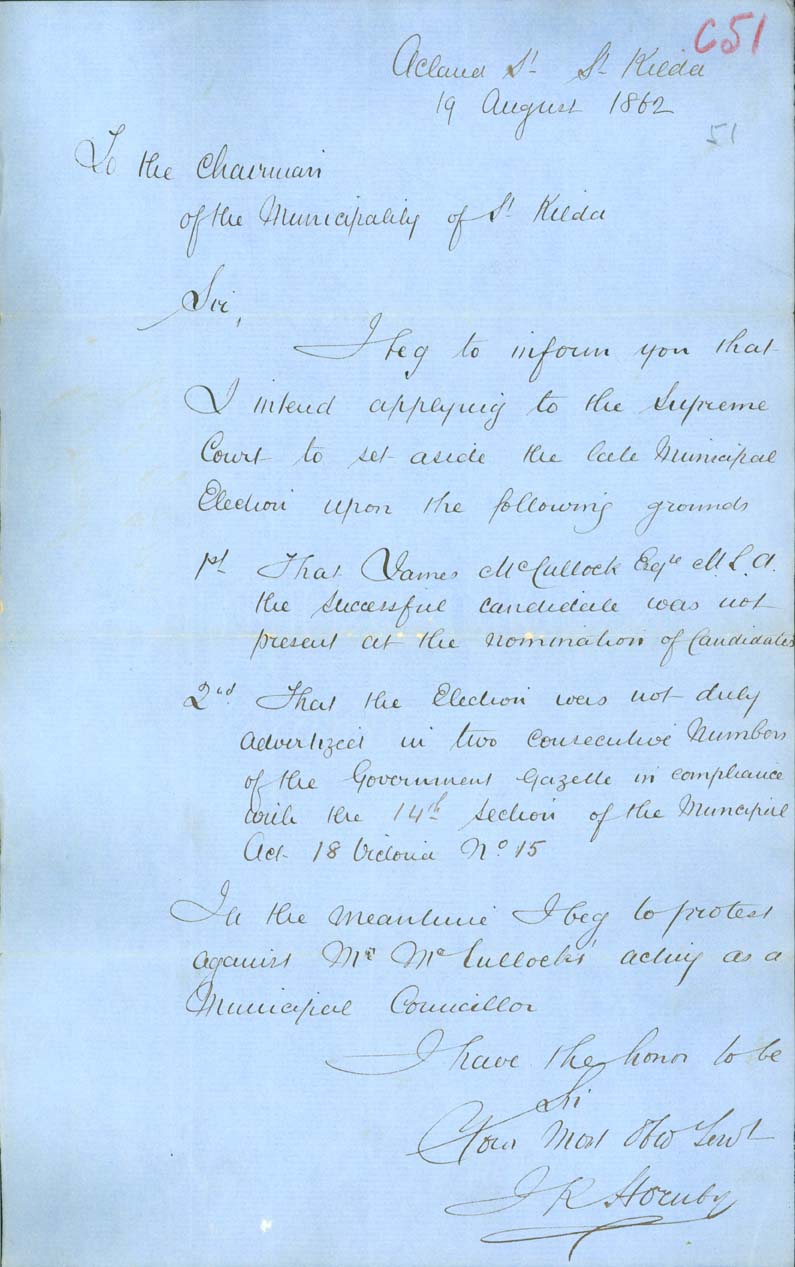 C51
Acland St St Kilda
19 August 1862
51
To the Chairman
of the Municipality of St Kilda
Sir,
I beg to inform you that
I intend applying to the Supreme
Court to set aside the late Municipal
Election upon the following grounds
1st That James McCullock Esqre M.L.A.
the successful candidate was not
present at the nomination of Candidates
2nd That the Election was not duly
advertized in two consecutive Numbers
of the Government Gazette in compliance
with the 14th Section of the Municipal
Act 18 Victoria No 15
In the meantime I beg to protest
against Mr McCullock's acting as a
Municipal Councillor
I have the honor to be
Sir
Your Most Obt Servt
J K Hornby